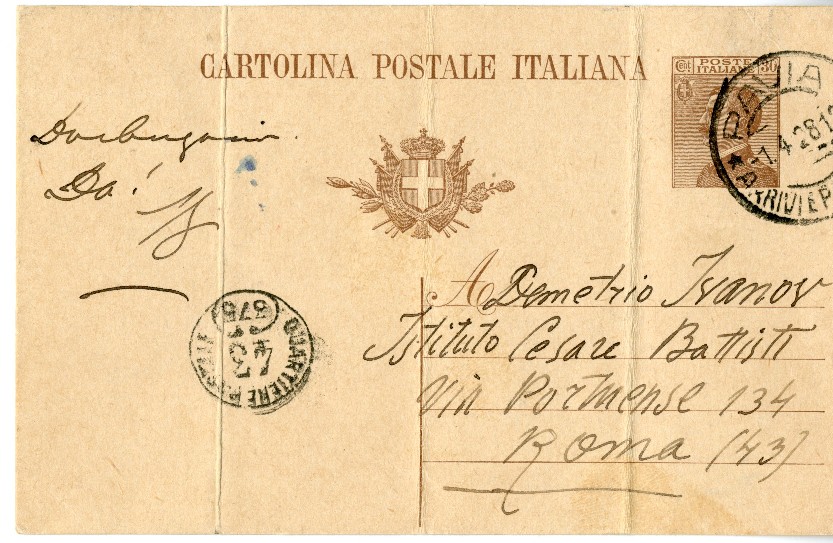 CARTOLINA POSTALE ITALIANA
Cent. POSTE ITALIANE 30
PAVIA
-1.4.28.1
★ ARRIVI E P
Da!
A Demetrio Ivanov
Istituto Cesare Battisti
Via Portuense 134
Roma (43)
QUARTIERE POSTALE